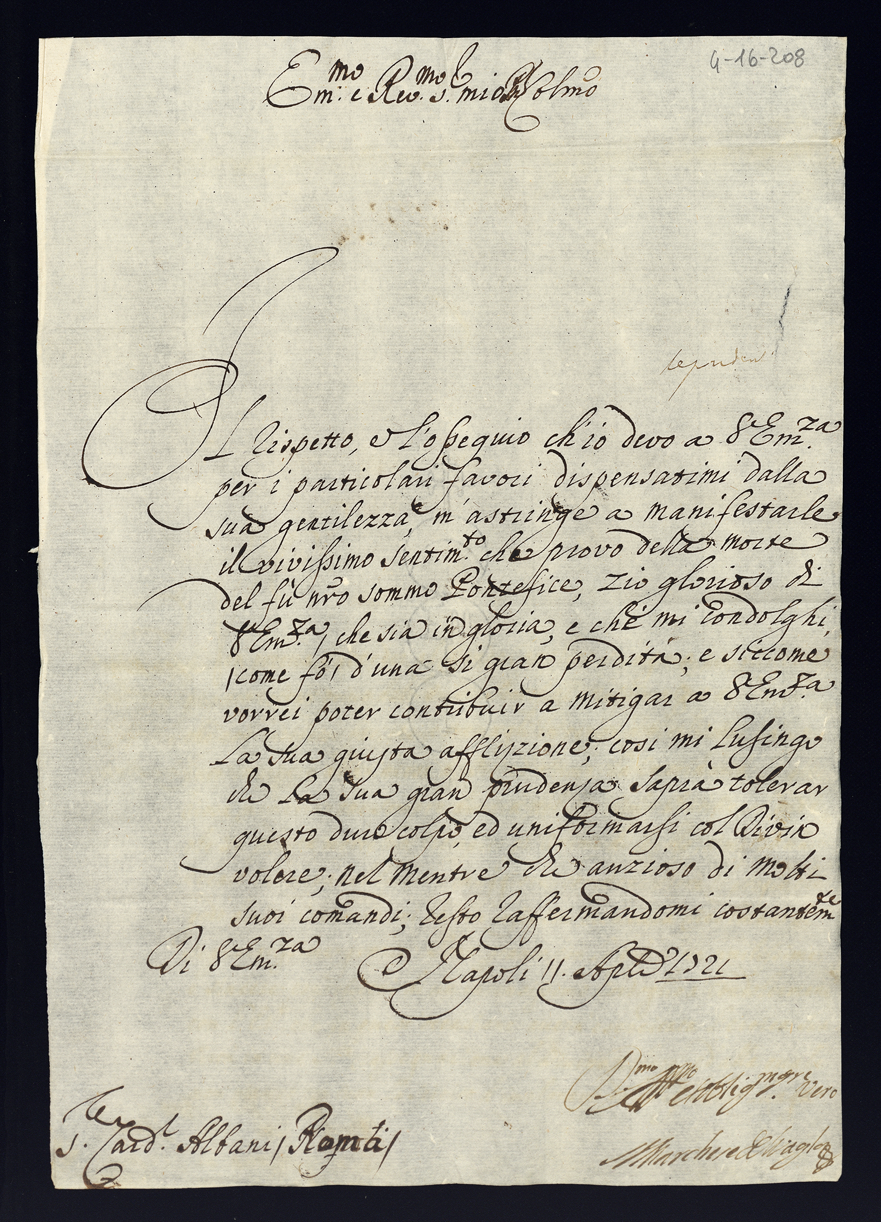 4-16-208
Em.mo e Rev.mo S.r mio P.ron Colmo
Il rispetto, e l'ossequio ch'io devo a V Em.za
per i particolari favori dispensatimi dalla
sua gentilezza, m'astringe a manifestarle
il vivissimo sentim.to che provo della morte
del fu nrõ sommo Pontefice, zio glorioso di
V Em.za, che sia in gloria, e che mi condolghi,
/come fò/ d'una si gran perdita; e siccome
vorrei poter contribuir a mitigar a V Em.za
La sua giusta afflizione; cosi mi lusingo
che La sua gran prudenza saprà tolerar
questo duro colpo, ed uniformarsi col Divin
volere; nel mentre che anzioso di molti
suoi comandi; resto raffermandomi costantem.te
Di V Em.za Napoli 11. Aple 1721
D.mo ed oblig.mo Ser.re vero
S.r Card.l Albani /
Il Marchese